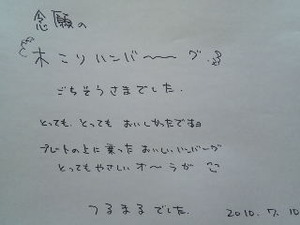 念願の
木こりハンバ〜〜グ
ごちそうさまでした.
とっても、とっても おいしかったです
プレートの上に乗った おいしいハンバーグ
とってもやさしいオ〜ラが
つるまるでした.
2010.7.10